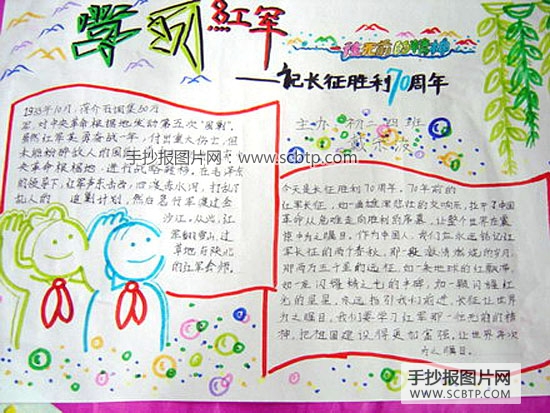 学习红军
一往无前的精神
——记长征胜利70周年
主办 初一四班
手抄报图片网 www.scbtp.com
1933年10月,蒋介石调集50万
军对中央革命根据地发动第五次"围剿"。
虽然红军英勇奋战一年,付出重大伤亡,但
未能粉碎敌人的围
央革命根据地,进行战略转移。在毛泽东
的领导下,红军声东击西,四渡赤水河,打乱了
敌人的 追剿计划,然后急行军渡过金
沙江。从此,红
军翻雪山,过
草地在陕北
的红军会师。
今天是长征胜利70周年。70年前的
红军长征,如一曲雄浑悲壮的交响乐,拉开了中国
革命从危难走向胜利的序幕,让整个世界在震
惊中为之瞩目。作为中国人,我们应永远铭记红
军长征的两个春秋,那一段激情燃烧的岁月,
那两万五千里的远征,如一条地球的红飘带,
如一座闪耀精光的丰碑,如一颗闪耀红
光的星星,永远指引我们前进。长征让世界
为之瞩目,我们要学习红军那一往无前的精
神,把祖国建设得更加富强,让世界再次
为之瞩目。
手抄报图片网
WWW.SCBTP.COM